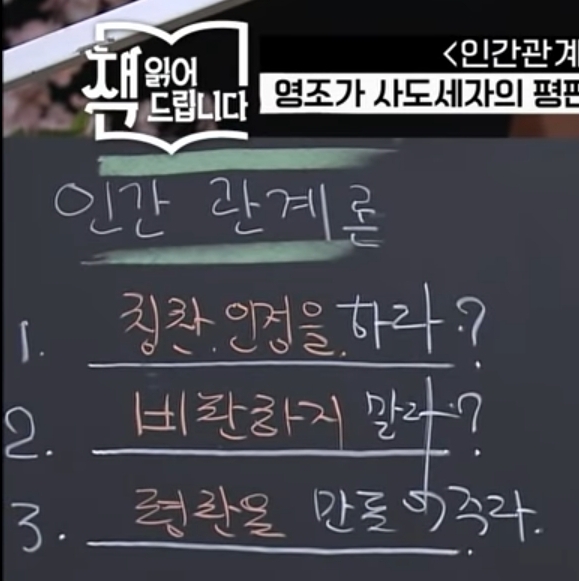 책 읽어
드립니다
<인간관계
영조가 사도세자의 평판
인간 관계론
1. 칭찬.인정을 하라?
2. 비난하지 말라?
3. 평판을 만들어주라.